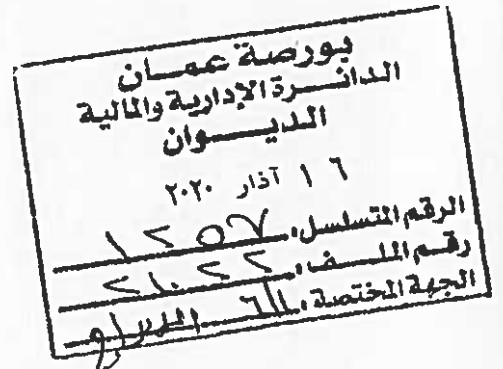 بورصة عمان
الدائرة الإدارية والمالية
الديوان
١٦ آذار ٢٠٢٠
الرقم المتسلسل: ١٢٥٧
رقم الملف: ٢١٠٢٢
الجهة المختصة: